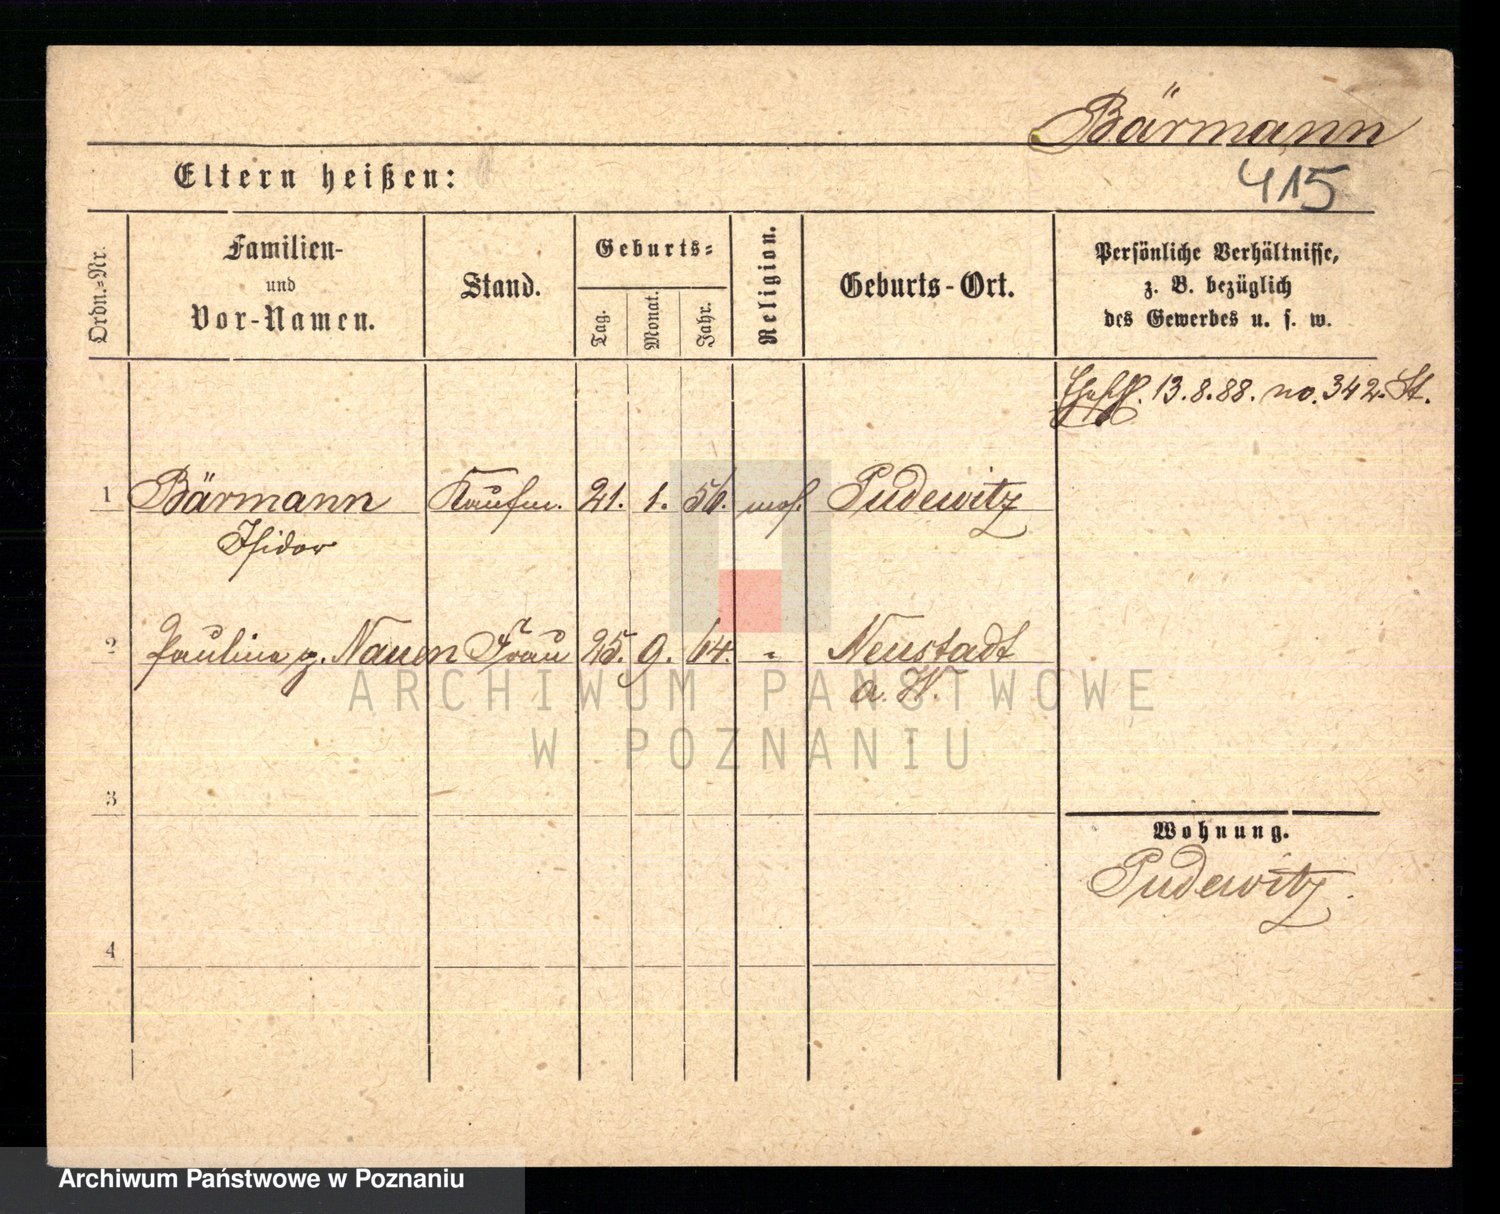 Bärmann
415
Eltern heißen:
Ordn.-Nr.
Familien-
und
Vor-Namen.
Stand.
Geburts-
Tag.
Monat.
Jahr.
Religion.
Geburts-Ort.
Persönliche Verhältnisse,
z. B. bezüglich
des Gewerbes u. s. w.
13.8.88. no. 342. St.
1 Bärmann Kaufm. 21. 1. 56. mos. Pudewitz
Isidor
2 Pauline g. Nauen Frau 25. 9. 64. " Neustadt
a. W.
ARCHIWUM PAŃSTWOWE
W POZNANIU
3
Wohnung.
Pudewitz.
4
Archiwum Państwowe w Poznaniu